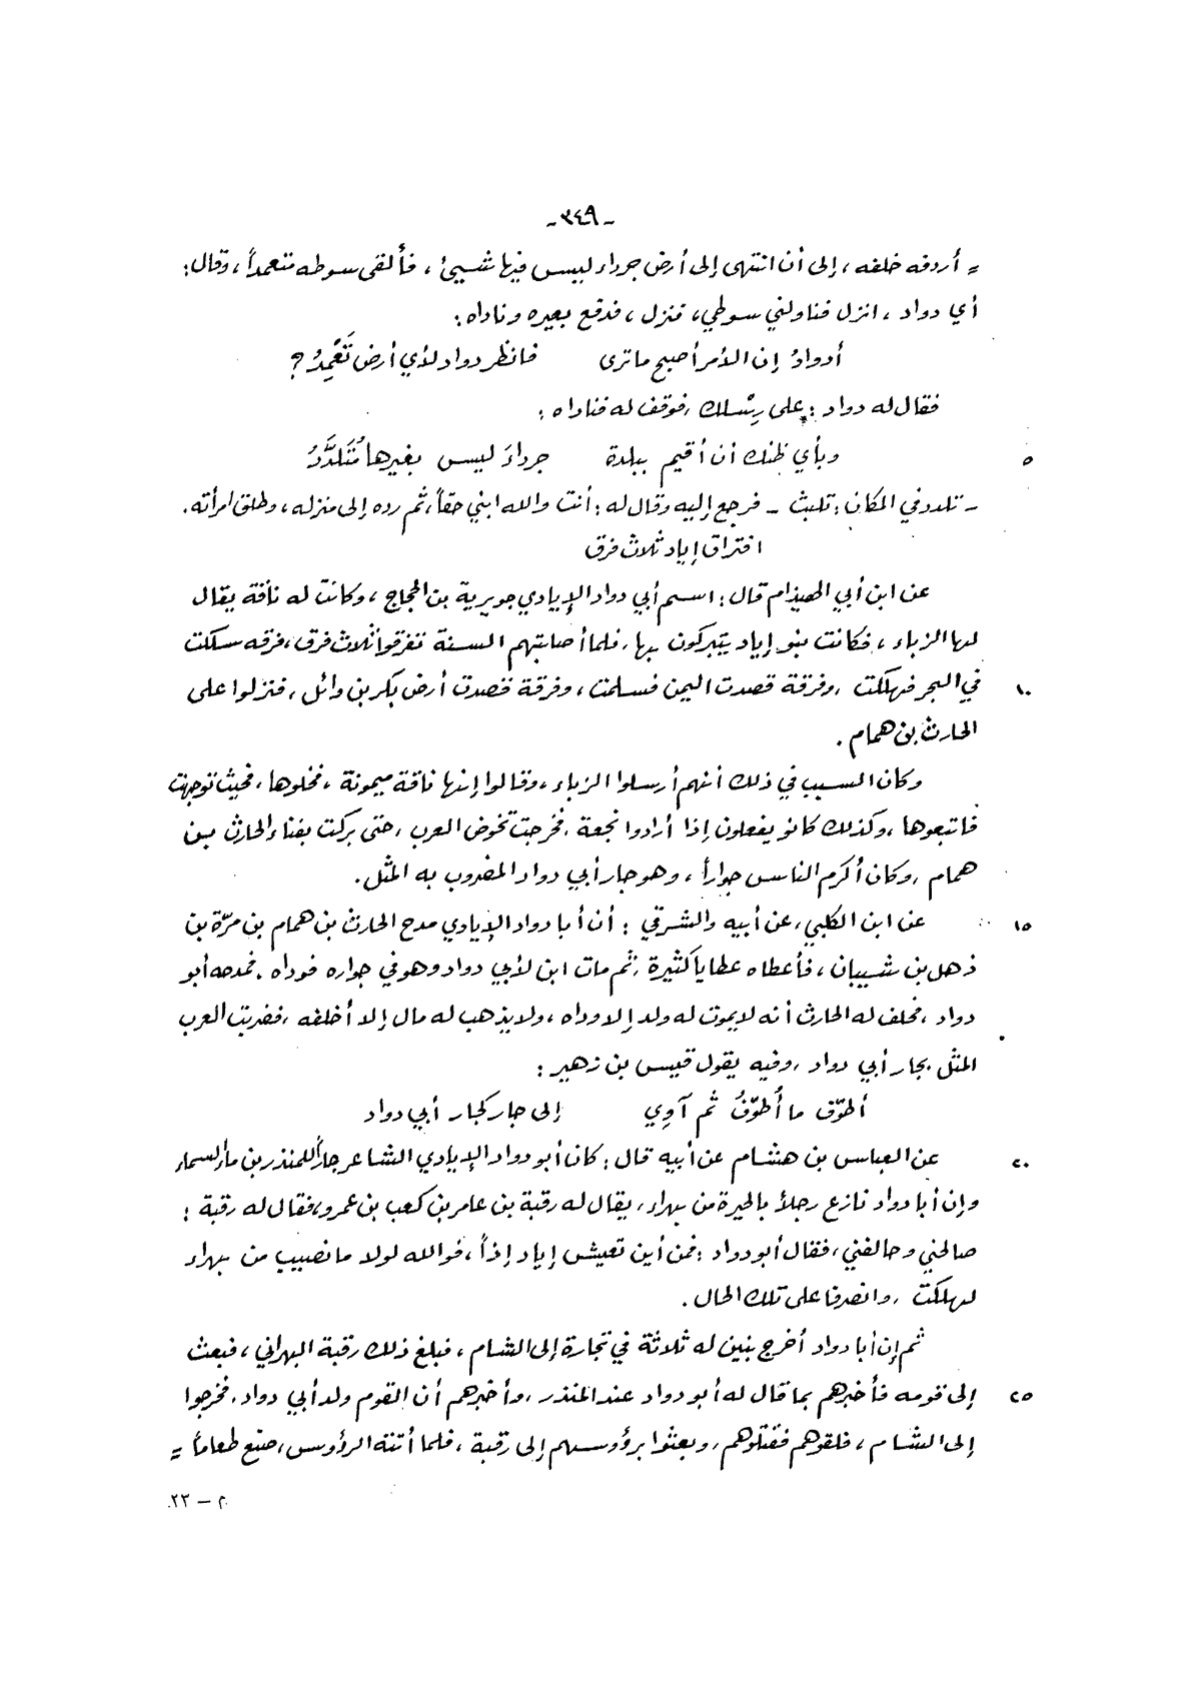 - ٣٤٩ -
= أردفه خلفه ، إلى أن انتهى إلى أرض جرداء ليس فيها شيئ ، فألقى سوطه متعمداً ، وقال :
أي دواد ، انزل فناولني سوطي ، فنزل ، فدفع بعيره وناداه :
أدوادُ إن الأمر أصبح ما ترى    فانظر دواد لأي أرض تَعْمِدُ ؟
فقال له دواد : على رِسْلك ، فوقف له فناداه :
٥    وبأي ظنك أن أقيم ببلدة    جرداءَ ليس بغيرها مُتَلَدَّدُ
- تلدد في المكان : تلبث - فرجع إليه وقال له : أنت والله ابني حقاً ، ثم رده إلى منزله ، وطلق امرأته .
افتراق إياد ثلاث فرق
عن ابن أبي الهيذام قال : اسم أبي دواد الإيادي جويرية بن الحجاج ، وكانت له ناقة يقال
لها الزباء ، فكانت بنو إياد يتبركون بها ، فلما أصابتهم السنة تفرقوا ثلاث فرق ، فرقه سلكت
١٠    في البحر فهلكت ، وفرقة قصدت اليمن فسلمت ، وفرقة قصدت أرض بكر بن وائل ، فنزلوا على
الحارث بن همام .
وكان السبب في ذلك أنهم أرسلوا الزباء ، وقالوا إنها ناقة ميمونة ، فخلوها ، فحيث توجهت
فاتبعوها ، وكذلك كانو يفعلون إذا أرادوا نجعة ، فخرجت تخوض العرب ، حتى بركت بفناء الحارث بن
همام ، وكان أكرم الناس جواراً ، وهو جار أبي دواد المضروب به المثل .
١٥    عن ابن الكلبي ، عن أبيه والشرقي : أن أبا دواد الإيادي مدح الحارث بن همام بن مرّة بن
ذهل بن شيبان ، فأعطاه عطايا كثيرة ، ثم مات ابن لأبي دواد وهو في جواره فوداه . فمدحه أبو
دواد ، فحلف له الحارث أنه لا يموت له ولد إلا وداه ، ولا يذهب له مال إلا أخلفه ، فضربت العرب
المثل بجار أبي دواد ، وفيه يقول قيس بن زهير :
أطوّف ما أُطوّفُ ثم آوِي    إلى جار كجار أبي دواد
٢٠    عن العباس بن هشام عن أبيه قال : كان أبو دواد الإيادي الشاعر جاراً للمنذر بن ماء السماء
وإن أبا دواد نازع رجلاً بالحيرة من بهراء ، يقال له رقبة بن عامر بن كعب بن عمرو ، فقال له رقبة :
صالحني وحالفني ، فقال أبو دواد : فمن أين تعيش إياد إذاً ، فوالله لولا ما نصيب من بهراء
لهلكت ، وانصرفا على تلك الحال .
ثم إن أبا دواد أخرج بنين له ثلاثة في تجارة إلى الشام ، فبلغ ذلك رقبة البهراني ، فبعث
٢٥    إلى قومه فأخبرهم بما قال له أبو دواد عند المنذر ، وأخبرهم أن القوم ولد أبي دواد . فخرجوا
إلى الشام ، فلقوهم فقتلوهم ، وبعثوا برؤوسهم إلى رقبة ، فلما أتته الرؤوس ، صنع طعاماً =
م - ٢٣